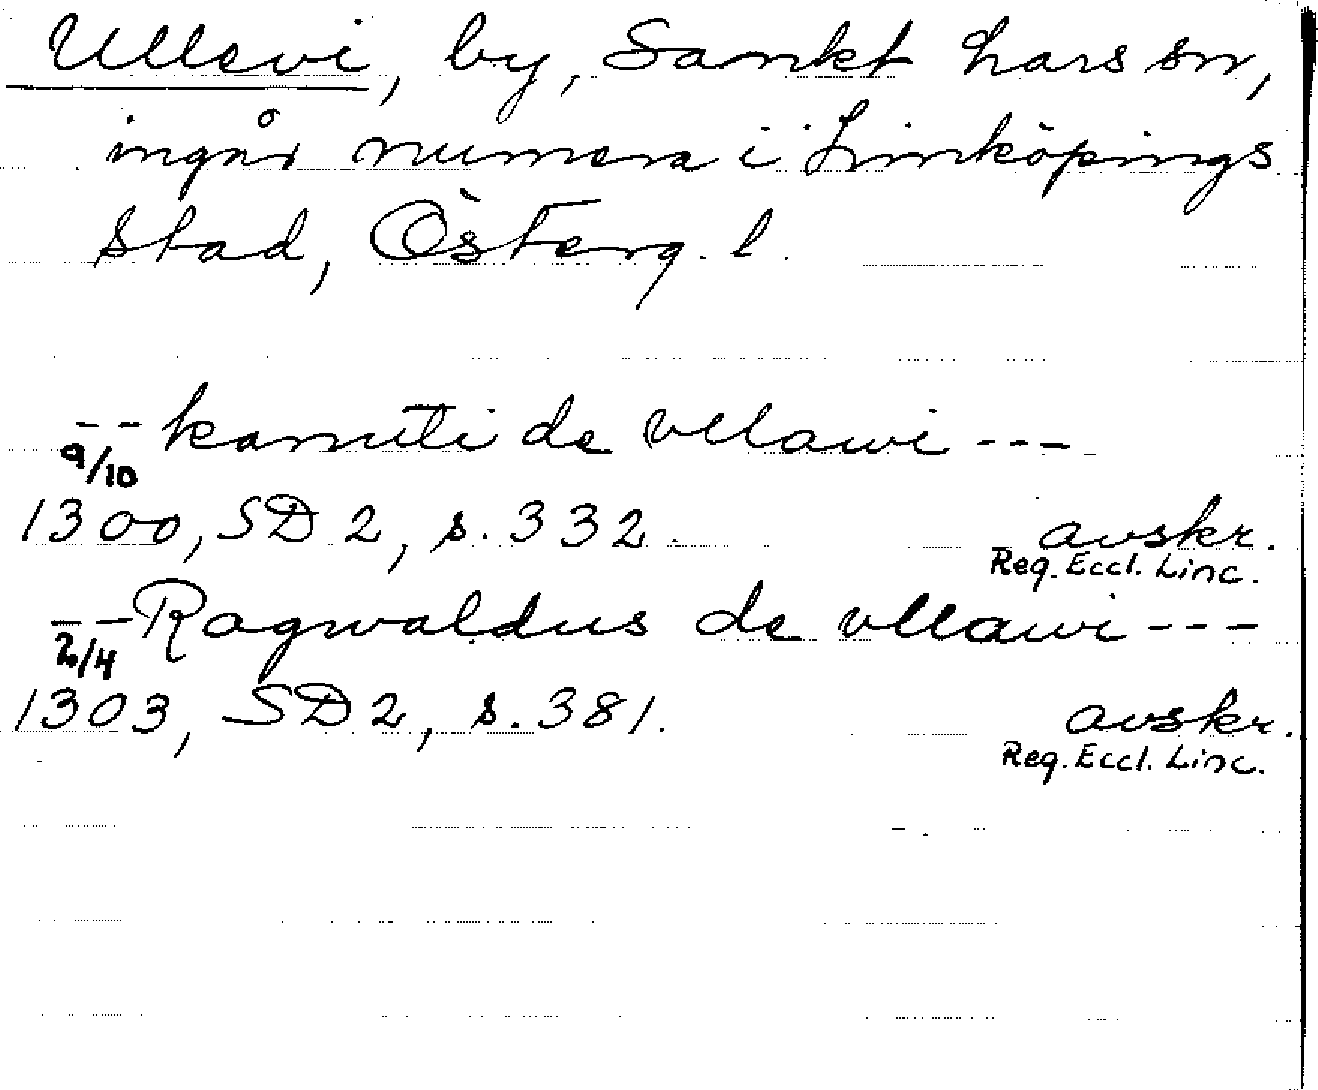 Ullevi, by, Sankt Lars sn,
ingår numera i Linköpings
stad, Österg. l.
-- kanuti de vllawi ---
9/10
1300, SD 2, s. 332. avskr.
Reg. Eccl. Linc.
-- Ragwaldus de vllawi ---
2/4
1303, SD 2, s. 381. avskr.
Reg. Eccl. Linc.